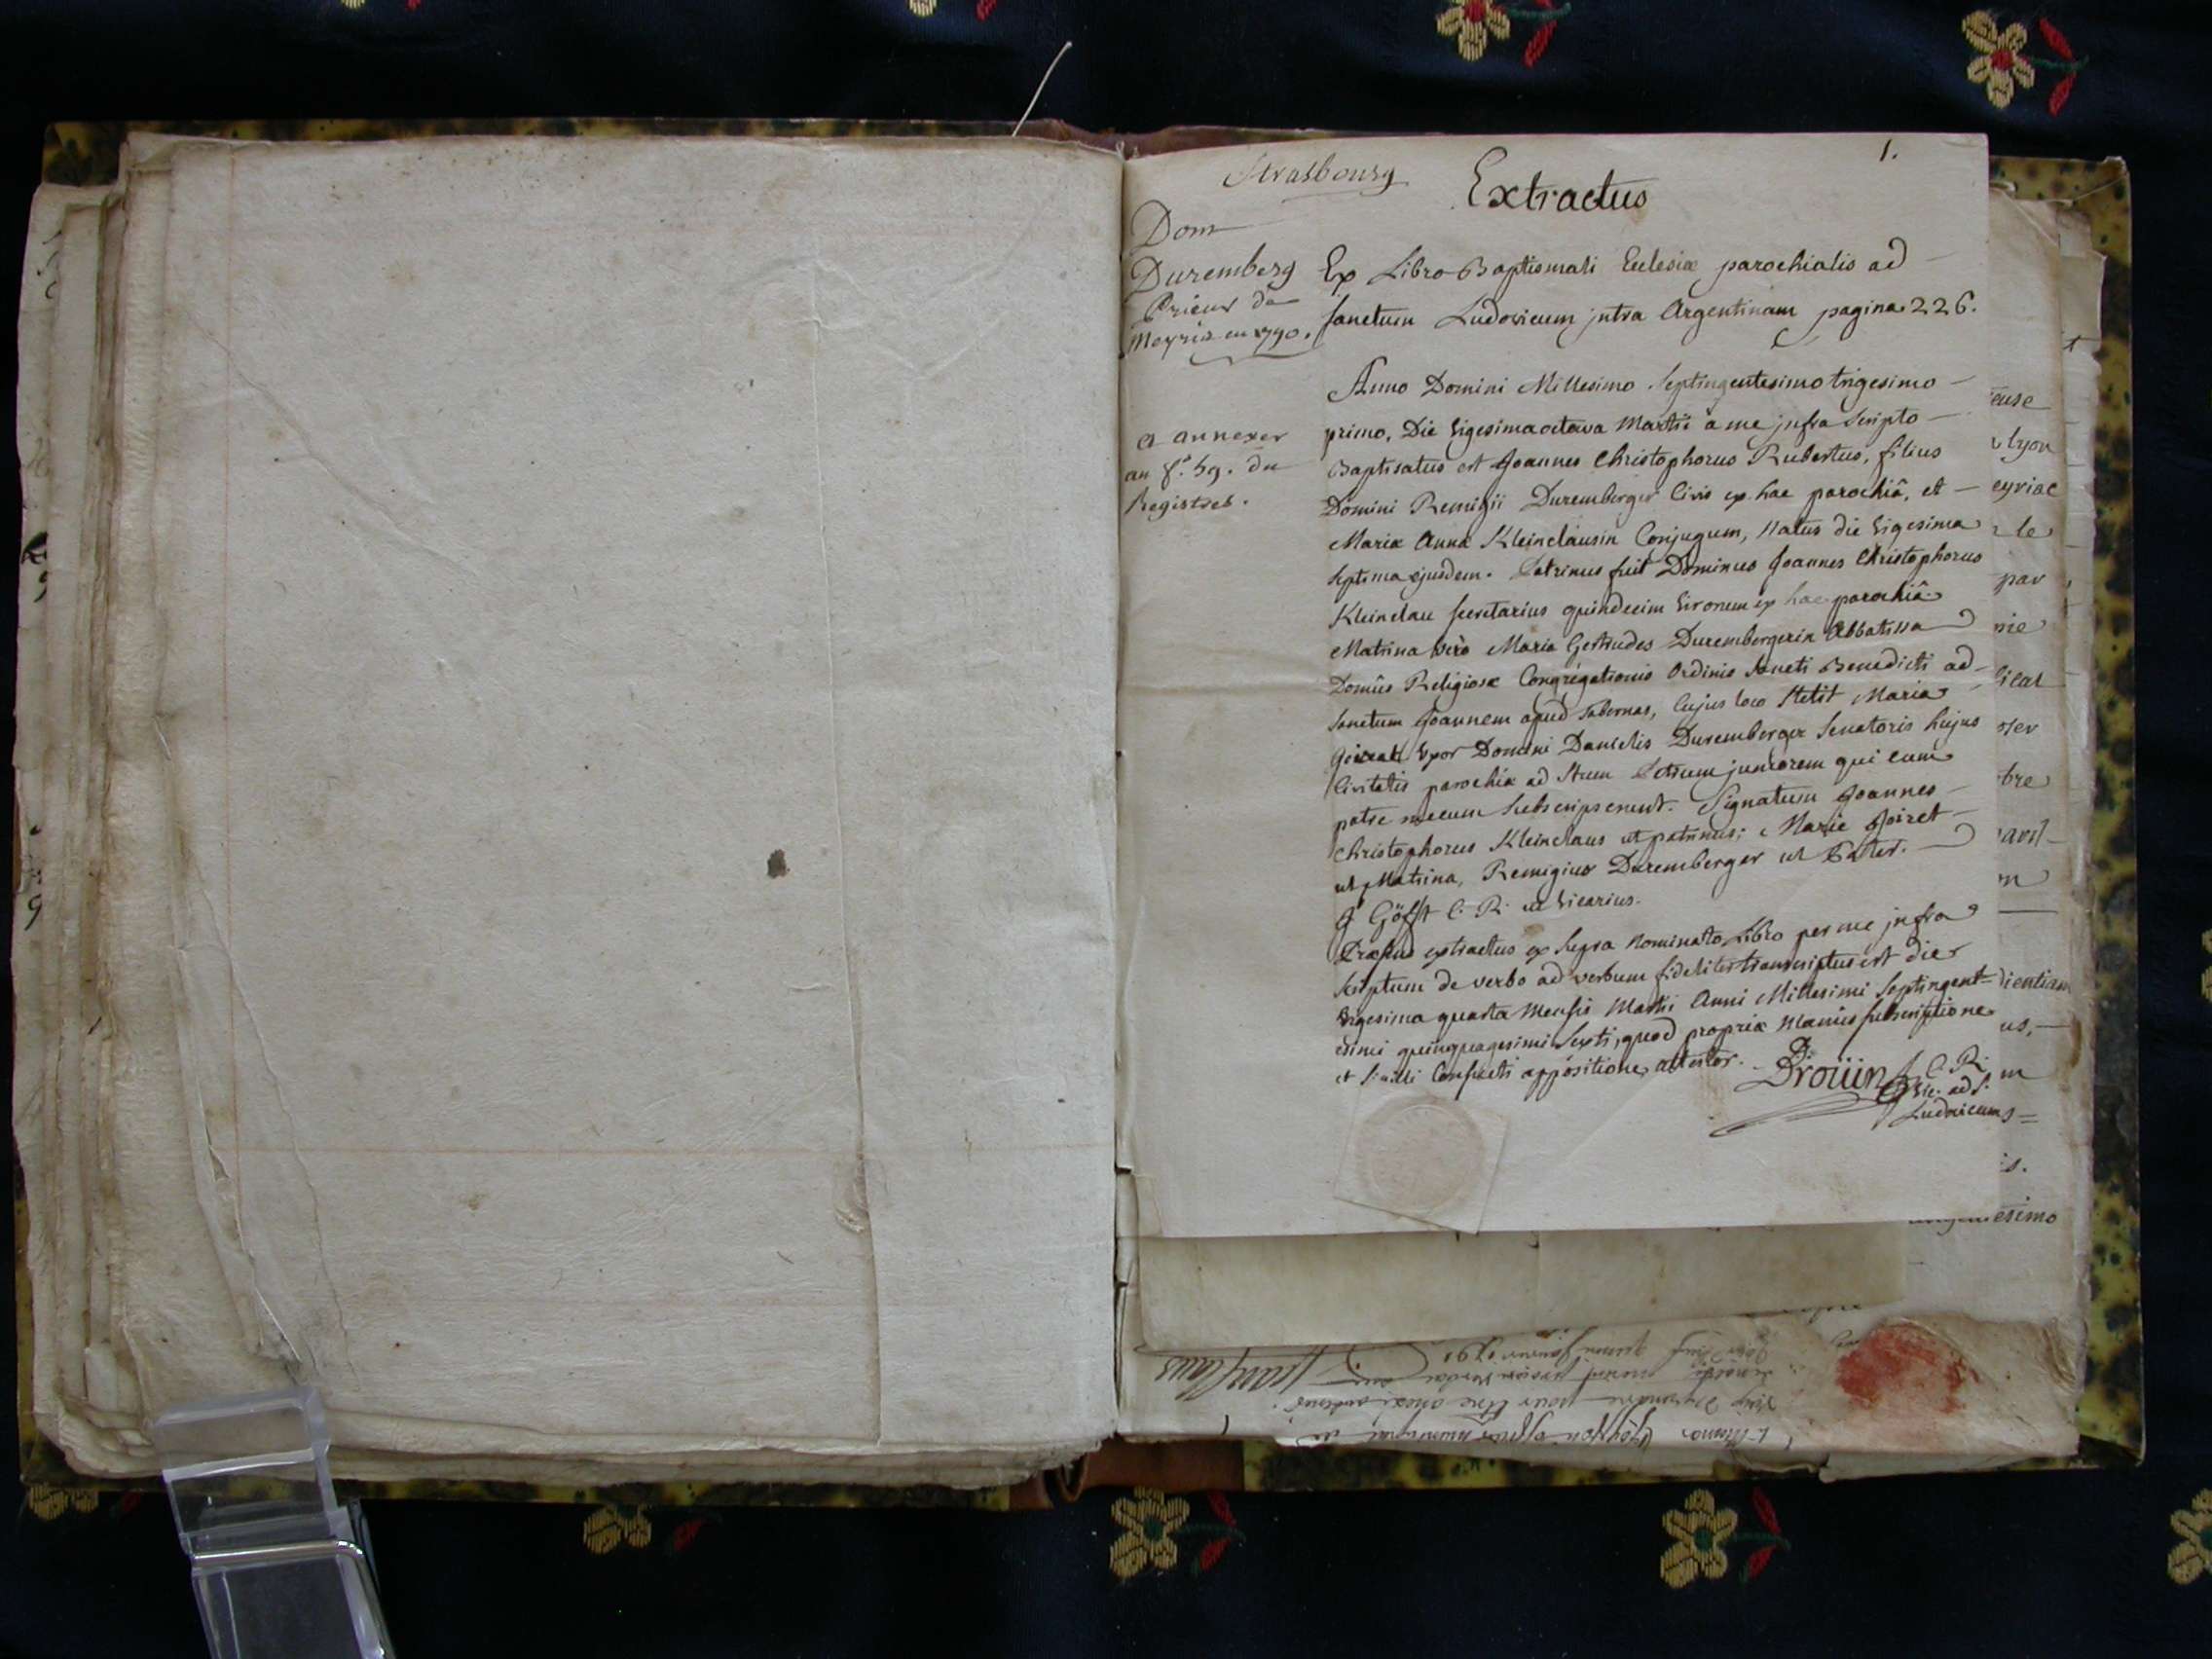 1.
Strasbourg
Extractus
Dom
Duremberg
Prieur de
Meyria en 1790.
a annexer
au f.º 59. du
Registres.
Ex Libro Baptismali Eclesiæ parochialis ad
sanctum Ludovicum jntra Argentinam pagina 226.
Anno Domini Millesimo Septingentesimo trigesimo
primo, Die Vigesima octava Martii a me jnfra Scripto
Baptisatus est Joannes Christophorus Rubertus, filius
Domini Remigii Duremberger Civis ex hac parochiâ, et
Mariæ Annæ Kleinclausin Conjugum, Natus die Vigesima
Septima ejusdem. Patrinus fuit Dominus Joannes Christophorus
Kleinclau secretarius quindecim Vironum ex hac parochiâ
Matrina Verò Maria Gertrudes Durembergerin Abbatissa
Domûs Religiosæ Congrégationis Ordinis Sancti Benedicti ad
Sanctum Joannem apud Tabernas, Cujus loco Stetit Maria
Uxor Domini Danielis Duremberger Senatoris hujus
Civitatis parochiæ ad Stum Petrum juniorem qui cum
patre mecum Subscripserunt. Signatum Joannes
Christophorus Kleinclaus ut patrinus; Marie Goiret
ut Matrina, Remigius Duremberger ut Pater.
C. R. ut Vicarius.
extractus ex Supra Nominato Libro per me jnfra
Scriptum de verbo ad verbum fideliter transcriptus est die
Vigesima quarta Mensis Martii Anni Millesimi Septingent=
esimi quinquagesimi Sexti, quod propriæ Manus subscriptione
et Sigilli Consueti appositione attestor.
Drouin C. R.
Vic. ad S.
Ludovicum
euse
lyon
eyriac
le
par
nie
licat
oser
bre
on
dientiam
us,
m
s=
is.
esimo